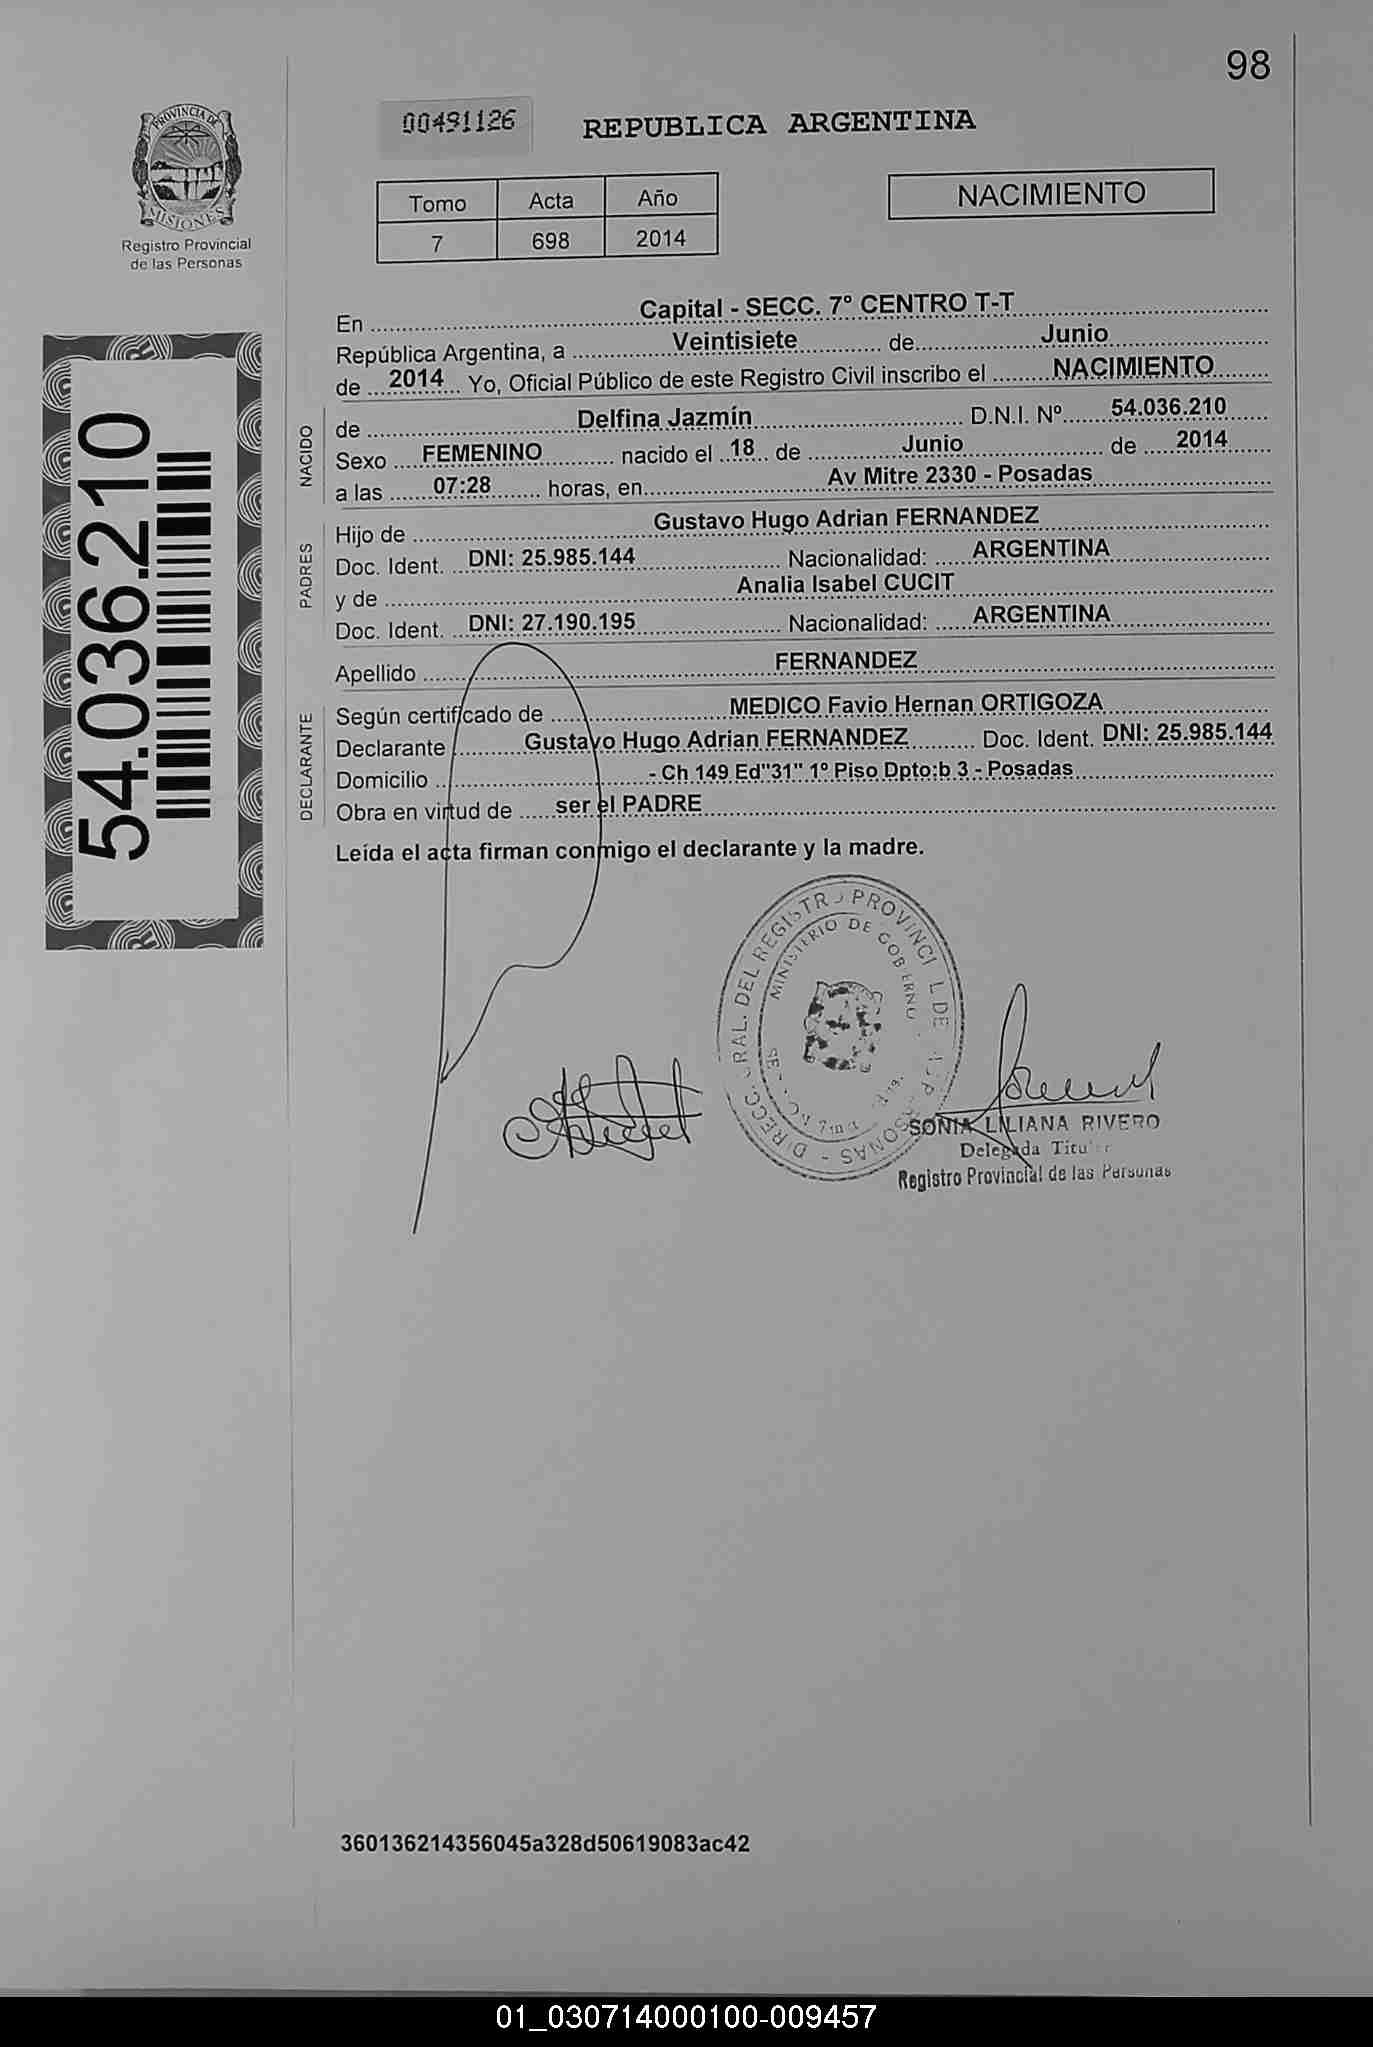 98
PROVINCIA DE
MISIONES
Registro Provincial
de las Personas
00491126
REPUBLICA ARGENTINA
Tomo Acta Año
7 698 2014
NACIMIENTO
En Capital - SECC. 7º CENTRO T-T
República Argentina, a Veintisiete de Junio
de 2014 Yo, Oficial Público de este Registro Civil inscribo el NACIMIENTO
NACIDO
de Delfina Jazmín D.N.I. Nº 54.036.210
Sexo FEMENINO nacido el 18 de Junio de 2014
a las 07:28 horas, en Av Mitre 2330 - Posadas
PADRES
Hijo de Gustavo Hugo Adrian FERNANDEZ
Doc. Ident. DNI: 25.985.144 Nacionalidad: ARGENTINA
y de Analia Isabel CUCIT
Doc. Ident. DNI: 27.190.195 Nacionalidad: ARGENTINA
Apellido FERNANDEZ
DECLARANTE
Según certificado de MEDICO Favio Hernan ORTIGOZA
Declarante Gustavo Hugo Adrian FERNANDEZ Doc. Ident. DNI: 25.985.144
Domicilio - Ch 149 Ed"31" 1º Piso Dpto:b 3 - Posadas
Obra en virtud de ser el PADRE
Leída el acta firman conmigo el declarante y la madre.
54.036.210
DEL REGISTRO
MINISTERIO DE GOBIERNO
SONIA LILIANA RIVERO
Delegada Titular
Registro Provincial de las Personas
360136214356045a328d50619083ac42
01_030714000100-009457